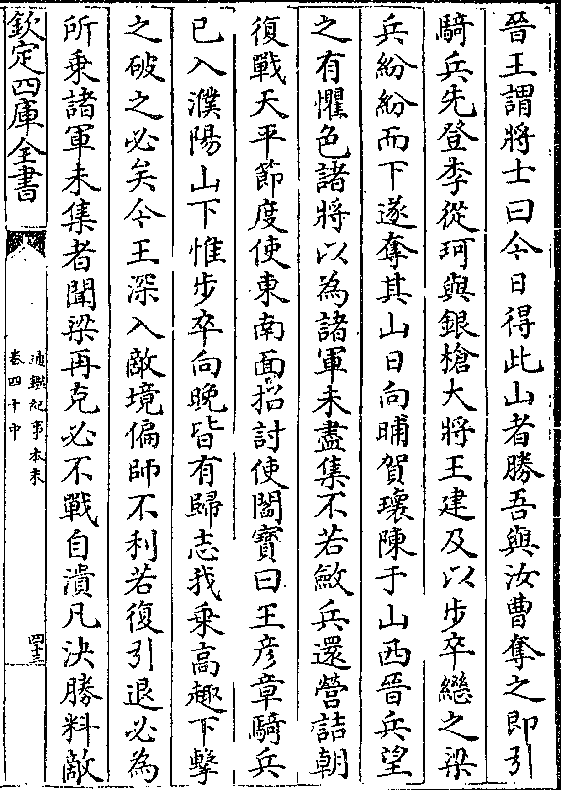 晉王謂將士曰今日得此山者勝吾與汝曹奪之即引
騎兵先登李從珂與銀槍大將王建及以步卒繼之梁
兵紛紛而下遂奪其山日向晡賀瓌陳于山西晉兵望
之有懼色諸將以為諸軍未盡集不若斂兵還營詰朝
復戰天平節度使東南面招討使閻寶曰王彦章騎兵
已入濮陽山下惟步卒向晚皆有歸志我乗高趣下擊
之破之必矣今王深入敵境偏師不利若復引退必為
所乗諸軍未集者聞梁再克必不戰自潰凡決勝料敵
欽定四庫全書
通鑑紀事本末
卷四十中
四十三